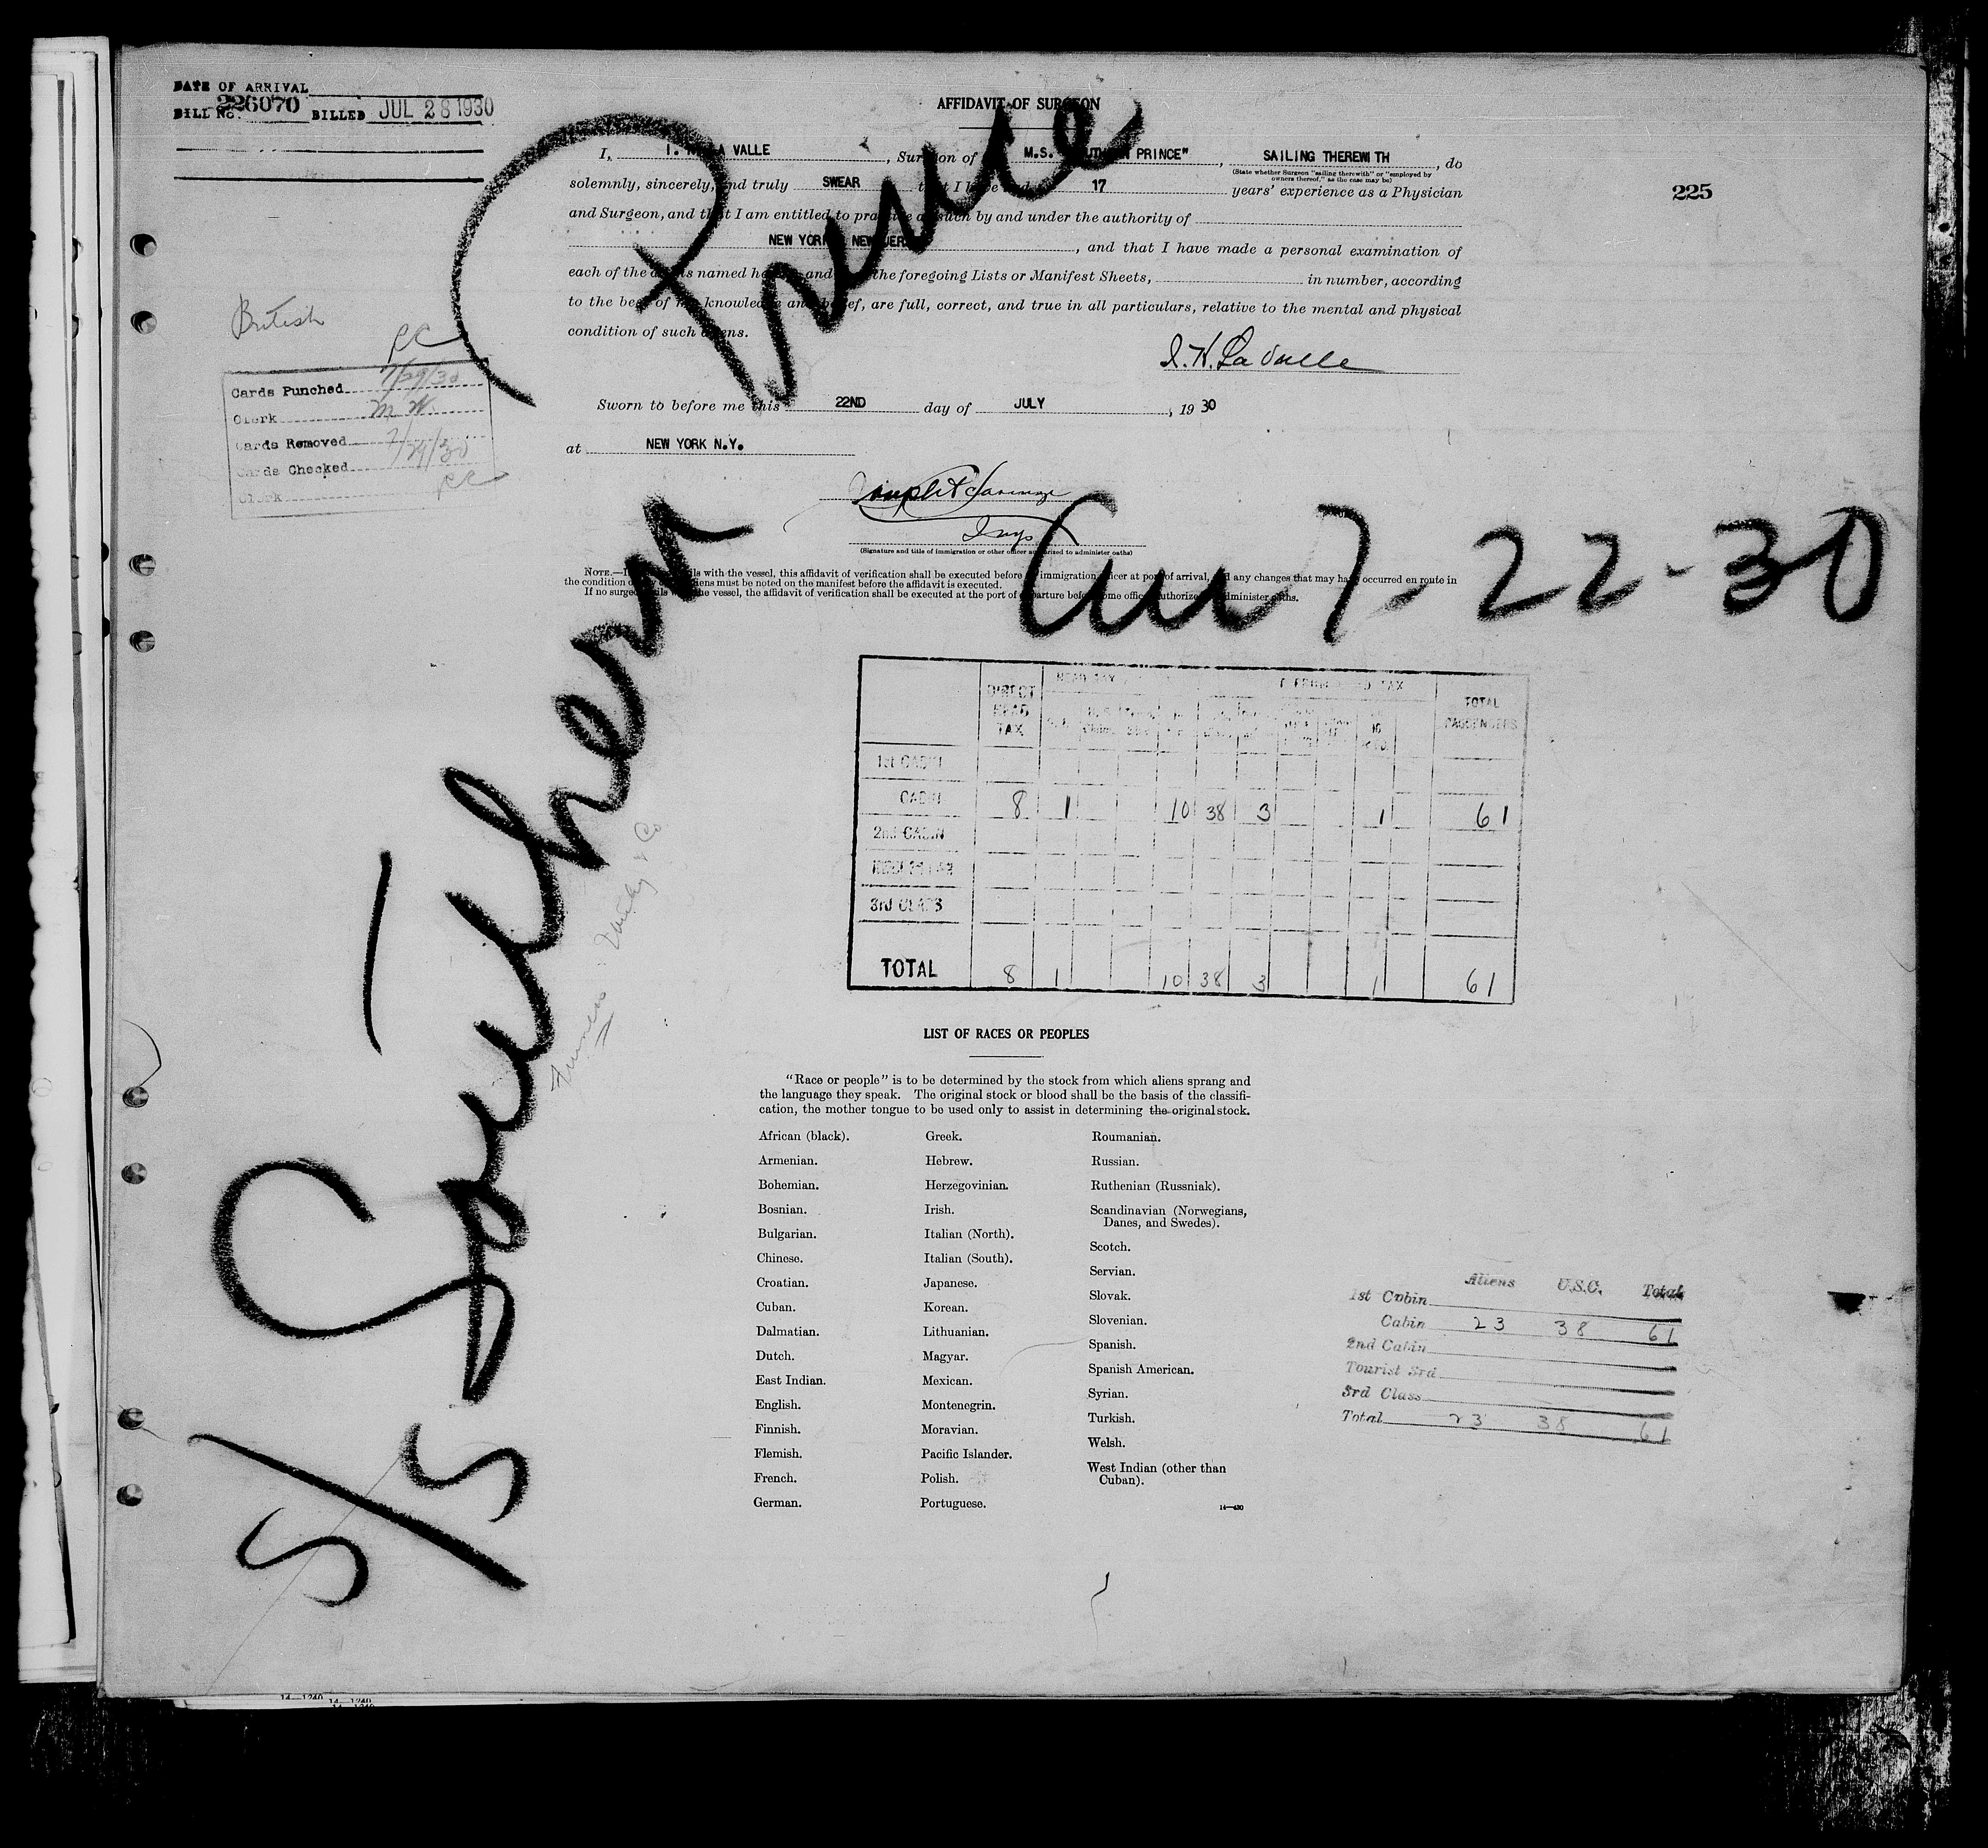 DATE OF ARRIVAL
BILL No. 226070 BILLED JUL 28 1930
225
AFFIDAVIT OF SURGEON
I, I. LA VALLE, Surgeon of M.S. "SOUTHERN PRINCE", SAILING THEREWITH, do
(State whether Surgeon "sailing therewith" or "employed by
owners thereof," as the case may be)
solemnly, sincerely, and truly SWEAR that I have had 17 years' experience as a Physician
and Surgeon, and that I am entitled to practice as such by and under the authority of
NEW YORK NEW JERSEY, and that I have made a personal examination of
each of the aliens named herein and in the foregoing Lists or Manifest Sheets, in number, according
to the best of my knowledge and belief, are full, correct, and true in all particulars, relative to the mental and physical
condition of such aliens.
I. H. La Valle
Sworn to before me this 22ND day of JULY, 19 30
at NEW YORK N.Y.
Insp
(Signature and title of immigration or other officer authorized to administer oaths)
NOTE.—If surgeon sails with the vessel, this affidavit of verification shall be executed before an immigration officer at port of arrival, and any changes that may have occurred en route in
the condition of any of the aliens must be noted on the manifest before the affidavit is executed.
If no surgeon sails with the vessel, the affidavit of verification shall be executed at the port of departure before some officer authorized to administer oaths.
British
RC
Cards Punched 7/29/30
Clerk M W.
Cards Removed 7/
Cards Checked 29/30
Clerk RC
S/S Southern Prince
Arr 7-22-30
Furness Withy & Co
DIRECT HEAD TAX
HEAD TAX
TOTAL PASSENGERS
1st CABIN
CABIN 8 1 10 38 3 1 61
2nd CABIN
3rd CLASS
TOTAL 8 1 10 38 3 1 61
LIST OF RACES OR PEOPLES
"Race or people" is to be determined by the stock from which aliens sprang and
the language they speak. The original stock or blood shall be the basis of the classifi-
cation, the mother tongue to be used only to assist in determining the original stock.
African (black). Greek. Roumanian.
Armenian. Hebrew. Russian.
Bohemian. Herzegovinian. Ruthenian (Russniak).
Bosnian. Irish. Scandinavian (Norwegians,
Danes, and Swedes).
Bulgarian. Italian (North). Scotch.
Chinese. Italian (South). Servian.
Croatian. Japanese. Slovak.
Cuban. Korean. Slovenian.
Dalmatian. Lithuanian. Spanish.
Dutch. Magyar. Spanish American.
East Indian. Mexican. Syrian.
English. Montenegrin. Turkish.
Finnish. Moravian. Welsh.
Flemish. Pacific Islander. West Indian (other than
Cuban).
French. Polish.
German. Portuguese.
14—430
Aliens U.S.C. Total
1st Cabin
Cabin 23 38 61
2nd Cabin
Tourist 3rd
3rd Class
Total 23 38 61
14—1240 14—1240
14—1240